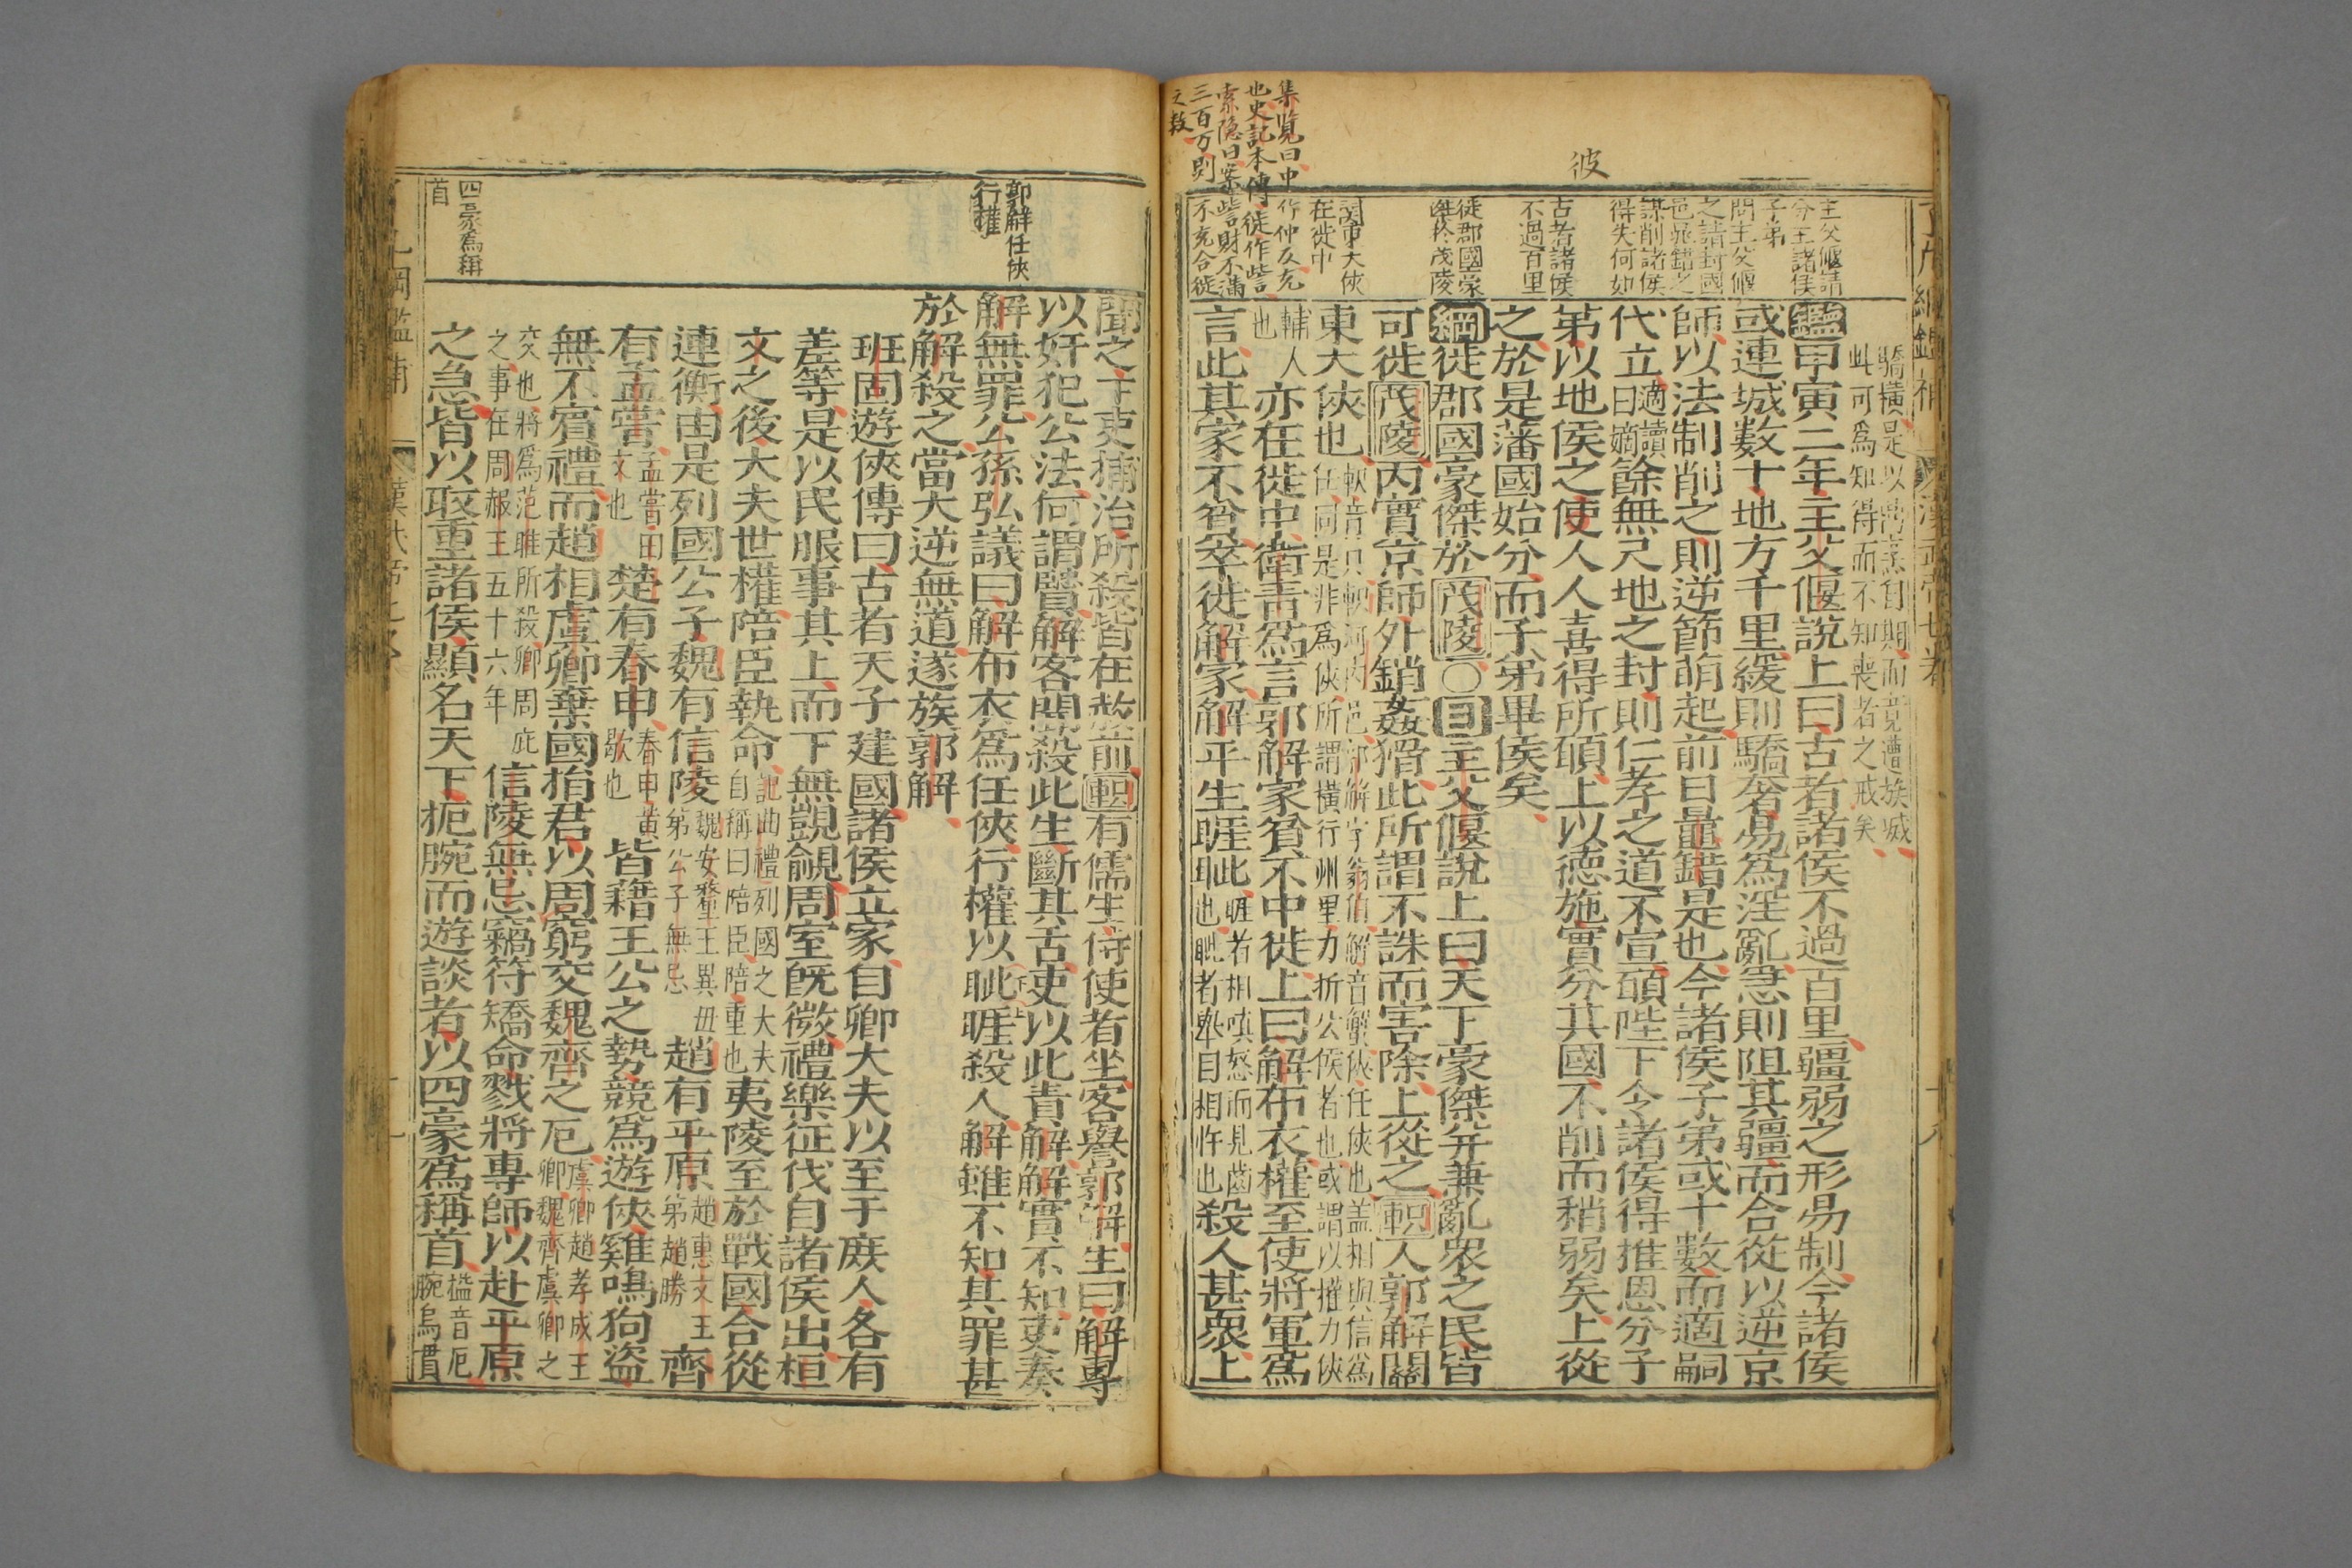 彼
集覽曰中作仲反充
也史記本傳徙作訾
索隐曰案訾財不滿
三百万則不充合徙
之数
主父偃請
分王諸侯
子弟
問主父偃
之請封國
邑晁錯之
謀削諸侯
得失何如
古者諸侯
不過百里
徙郡國豪
傑於茂陵
關東大俠
在徙中
驕橫是以當羔自期而竟遭族滅
此可爲知得而不知喪者之戒矣
鑑甲寅二年主父偃說上曰古者諸侯不過百里疆弱之形易制今諸侯
或連城数十地方千里緩則驕奢易爲淫亂急則阻其疆而合從以逆京
師以法制削之則逆節萌起前日鼂錯是也今諸侯子弟或十數而適嗣
代立適讀曰嫡餘無尺地之封則仁孝之道不宣頋陛下令諸侯得推恩分子
弟以地侯之使人人喜得所頋上以德施實分其國不削而稍弱矣上從
之於是藩國始分而子弟畢侯矣
綱徙郡國豪傑於茂陵〇目主父偃說上曰天下豪傑并兼亂衆之民皆
可徙茂陵內實京師外銷姦猾此所謂不誅而害除上從之軹人郭解關
東大俠也軹音只軹河內邑郭解字翁伯解音蟹俠任俠也盖相與信爲任同是非爲俠所謂橫行州里力折公侯者也或謂以權力俠
輔人也亦在徙中衛青爲言郭解家貧不中徙上曰解布衣權至使將軍爲
言此其家不貧卒徙解家解平生睚眦睚者相嗔怒而見齒也眦者舉目相忤也殺人甚衆上
郭觧任俠
行權
四豪爲稱
首
聞之下吏捕治所殺皆在赦前軹有儒生侍使者坐客譽郭解生曰解專
以奸犯公法何謂賢解客聞殺此生斷其舌吏以此責解解實不知吏奏
解無罪公孫弘議曰解布衣爲任俠行權以眦睚殺人解雖不知其罪甚
於解殺之當大逆無道遂族郭解
班固遊俠傳曰古者天子建國諸侯立家自卿大夫以至于庶人各有
差等是以民服事其上而下無覬覦周室旣微禮樂征伐自諸侯出桓
文之後大夫世權陪臣執命記曲禮列國之大夫自稱曰陪臣陪重也夷陵至於戰國合從
連衡由是列國公子魏有信陵魏安釐王異母弟公子無忌趙有平原趙惠文王弟趙勝齊
有孟嘗孟嘗田文也楚有春申春申黃歇也皆藉王公之勢競爲遊俠雞鳴狗盜
無不賓禮而趙相虞卿棄國捐君以周窮交魏齊之厄虞卿趙孝成王卿魏齊虞卿之
交也將爲范雎所殺卿周庇之事在周赧王五十六年信陵無忌竊符矯命戮將專師以赴平原
之急皆以取重諸侯顯名天下扼腕而遊談者以四豪爲稱首搤音厄腕烏貫